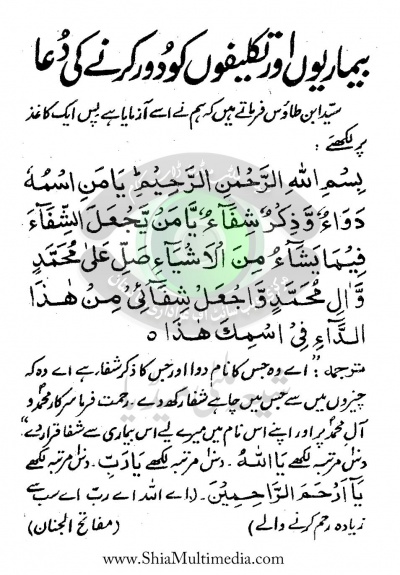 بیماریوں اور تکلیفوں کو دور کرنے کی دُعا
سیّد ابن طاؤس فرماتے ہیں کہ ہم نے اسے آزمایا ہے پس ایک کاغذ
پر لکھے :
بِسْمِ اللهِ الرَّحْمٰنِ الرَّحِيْمِ يَا مَنِ اسْمُهٗ
دَوَآءٌ وَّذِكْرُهٗ شِفَآءٌ يَّا مَنْ يَّجْعَلُ الشِّفَآءَ
فِيْمَا يَشَآءُ مِنَ الْاَشْيَآءِ صَلِّ عَلٰى مُحَمَّدٍ
وَّاٰلِ مُحَمَّدٍ وَّاجْعَلْ شِفَآئِىْ مِنْ هٰذَا
الدَّآءِ فِى اسْمِكَ هٰذَا ٥
ترجمہ : "اے وہ جس کا نام دوا اور جس کا ذکر شفا ہے اے وہ کہ
چیزوں میں سے جس میں چاہے شفا رکھ دے۔ رحمت فرما سرکار محمدؐ و
آل محمدؐ پر اور اپنے اس نام میں میرے لیے اس بیماری سے شفا قرار دے"
دس مرتبہ لکھے يَا اَللهُ۔ دس مرتبہ لکھے يَا رَبِّ۔ دس مرتبہ لکھے
يَآ اَرْحَمَ الرَّاحِمِيْنَ۔ (اے اللہ اے رب اے سب سے
زیادہ رحم کرنے والے) (مفاتح الجنان)
www.ShiaMultimedia.com